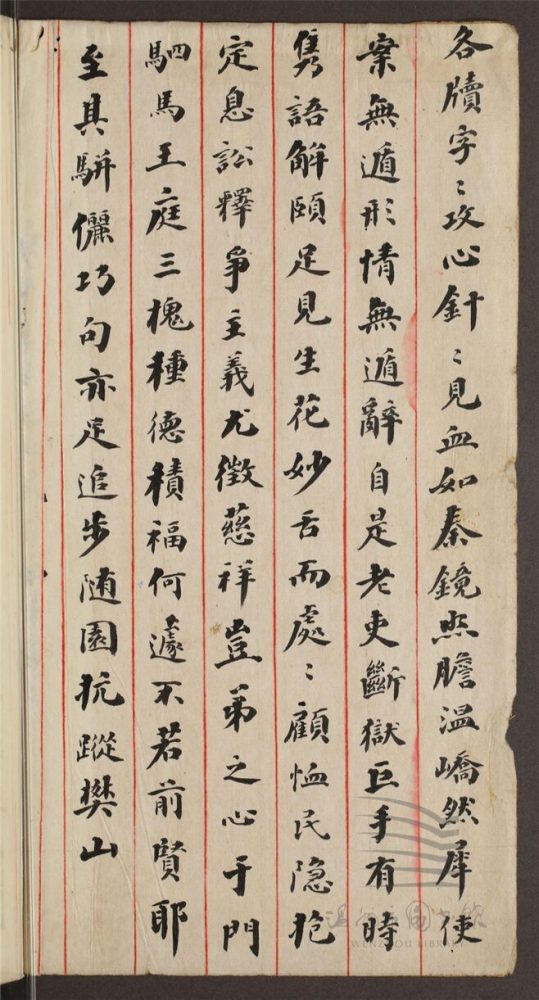 各牘字〻攻心針〻見血如秦鏡照膽溫嶠然犀使
案無遁形情無遁辭自是老吏斷獄巨手有時
雋語解頤足見生花妙舌而處〻顧恤民隐抱
定息訟釋爭主義尤徵慈祥豈弟之心于門
駟馬王庭三槐種德積福何遽不若前賢耶
至其駢儷巧句亦足追步随園抗蹤樊山
溫州市圖書館
WENZHOU LIBRARY